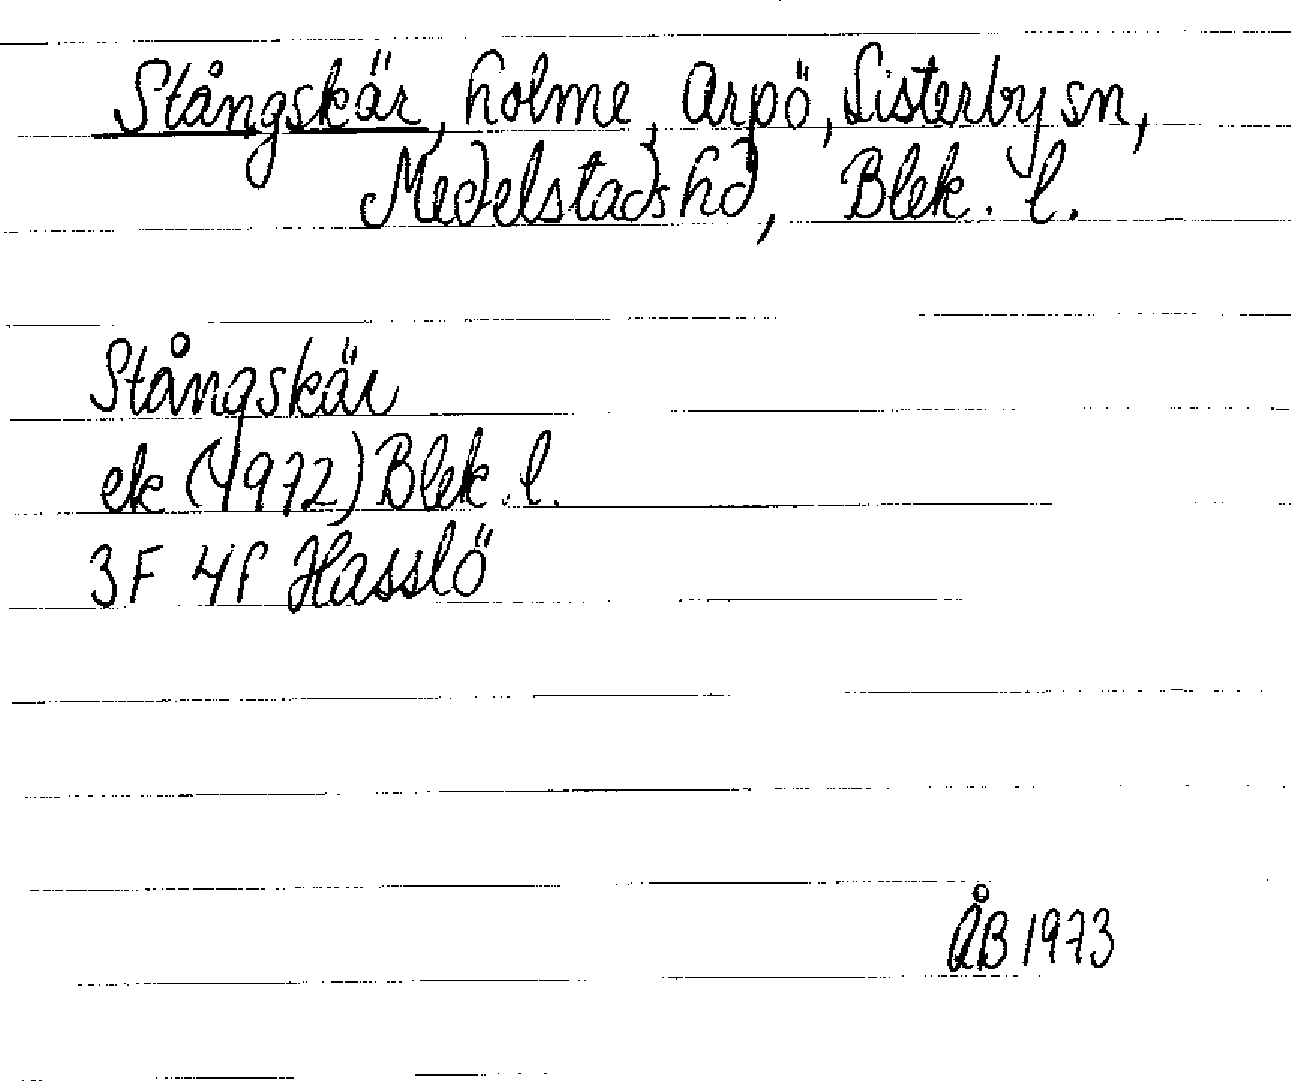 Stångskär, holme, Arpö, Listerby sn,
Medelstads hd, Blek. l.
Stångskär
ek (1972) Blek. l.
3F 4f Hasslö
ÅB 1973